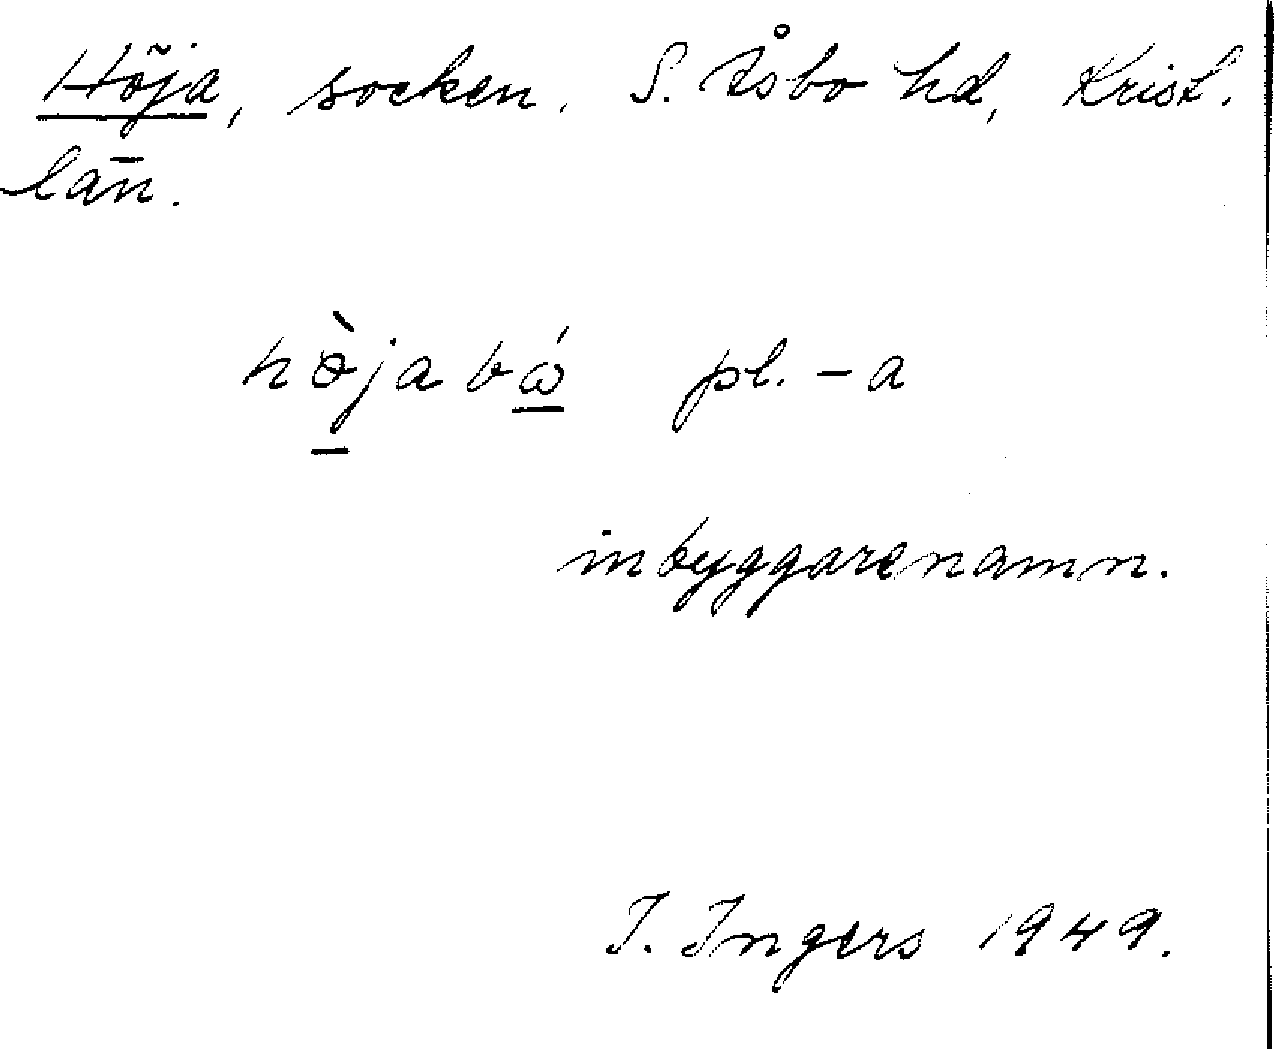 Höja, socken. S. Åsbo hd, Krist.
län.
hø̀jabɷ́ pl. -a
inbyggarenamn.
I. Ingers 1949.